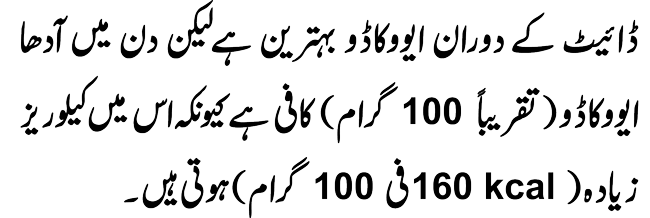 ڈائیٹ کے دوران ایووکاڈو بہترین ہے لیکن دن میں آدھا
ایووکاڈو (تقریباً 100 گرام) کافی ہے کیونکہ اس میں کیلوریز
زیادہ (160 kcal فی 100 گرام) ہوتی ہیں۔